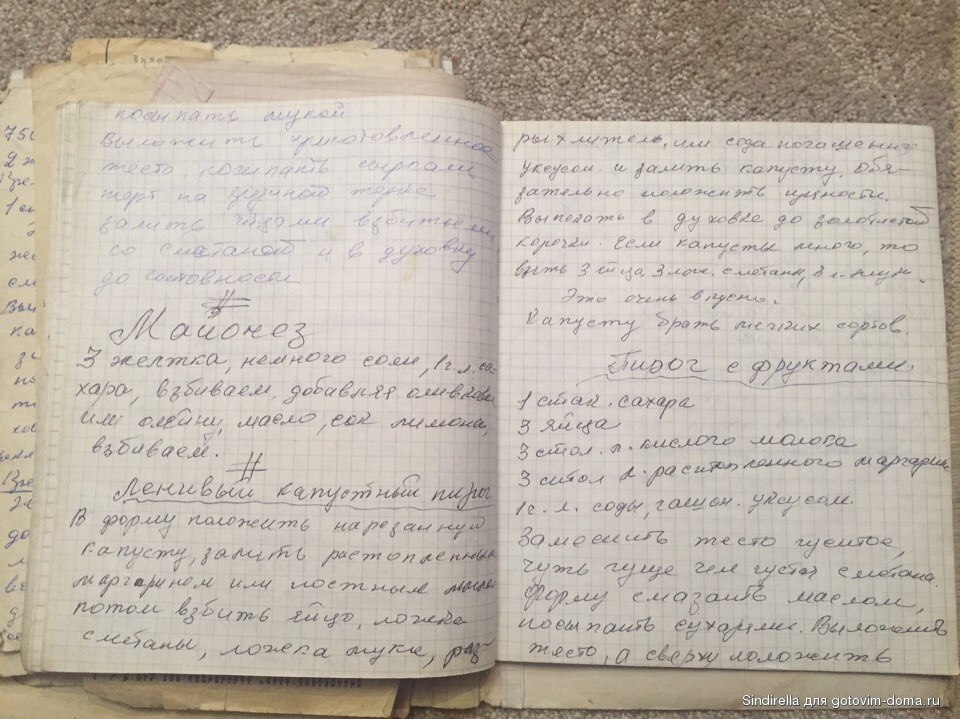 посыпать мукой
Выложить приготовленное
тесто посыпать сырками
терт на крупной терке
залить яйцами взбитыми
со сметаной и в духовку
до готовности
Майонез
3 желтка, немного соли, 1 ч. л. са-
хара, взбиваем, добавляя оливковое
или олейну, масло, сок лимона,
взбиваем.
Ленивый капустный пирог
В форму положить нарезанную
капусту, залить растопленным
маргарином или постным маслом
потом взбить яйцо, ложка
сметаны, ложка муки, раз-
рыхлитель, или сода погашенная
уксусом и залить капусту. Обя-
зательно положить пряности.
Выпекать в духовке до золотистой
корочки. Если капусты много, то
взять 3 яйца, 3 лож. сметаны, 3 л. муки.
Это очень вкусно.
Капусту брать мягких сортов.
Пирог с фруктами.
1 стак. сахара
3 яйца
3 стол. л. кислого молока
3 стол л. растопленного маргарин
1 ч. л. соды, гашен. уксусом
Замесить тесто густое,
чуть гуще чем густая сметана.
Форму смазать маслом,
посыпать сухарями. Выложить
тесто, а сверху положить
Sindirella для gotovim-doma.ru